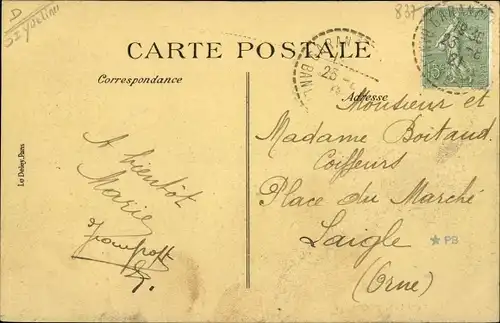 837
CARTE POSTALE
Correspondance
Adresse
A bientôt
Marie
Monsieur et
Madame Boitaud
Coiffeurs
Place du Marché
Laigle
(Orne)
PB
Le Deley, Paris